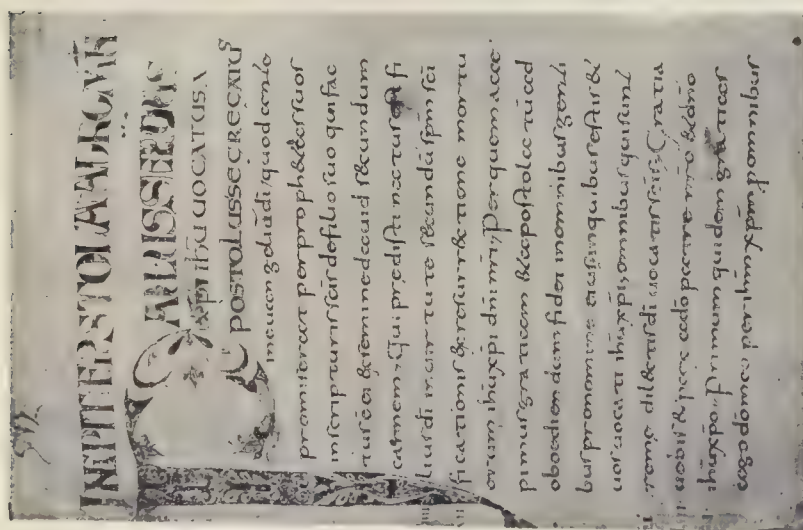 INPIT EPSTOLA AD ROMN
PAULUS SERUUS
xpi ihu UOCATUS A
POSTOLUS SEGREGATUS
in euangeliū di, quod ante
promiserat per proph&as suos
in scripturis scis de filio suo qui fac
tus ei & semine dauid s&cundum
carnem, Qui predistinatus est fi
lius di in uirtute s&cundū spm sci
ficationis & resurr&tione mortu
orum ihu xpi dni nri, Per quem acce
pimus gratiam & apostolatū ad
oboediendum fidei in omnibus genti
bus pro nomine eius in quibus estis &
uos uocati ihu xpi, omnibus qui sunt
rome dil&tis di uocatis scis, Gratia
uobis & pax a do patre nro & dno
ihu xpo Primum quidem gratias
ago do meo per ihm xpm pro omnibus